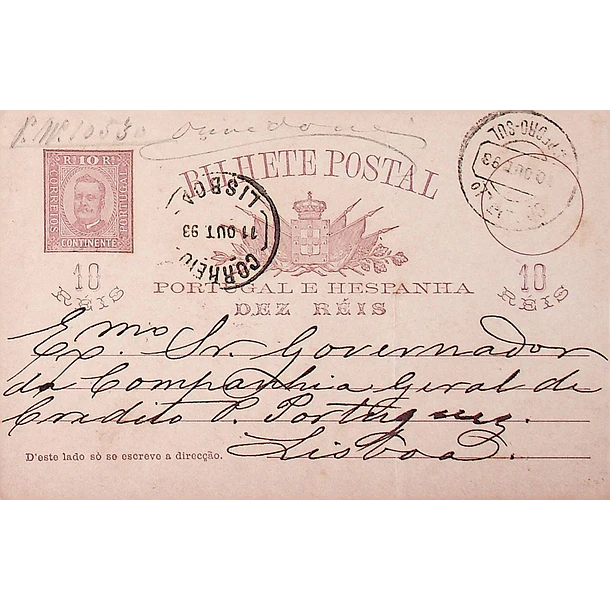 P. Nº 10530
BILHETE POSTAL
R. 10 R.
CORREIOS
PORTUGAL
CONTINENTE
CORREIO
LISBOA
11 OUT. 93
PEDRO-SUL
10 OUT. 93
10
RÉIS
10
RÉIS
PORTUGAL E HESPANHA
DEZ RÉIS
Exmo Sr. Governador
da Companhia Geral de
Credito P. Portuguez.
Lisboa.
D'este lado só se escreve a direcção.